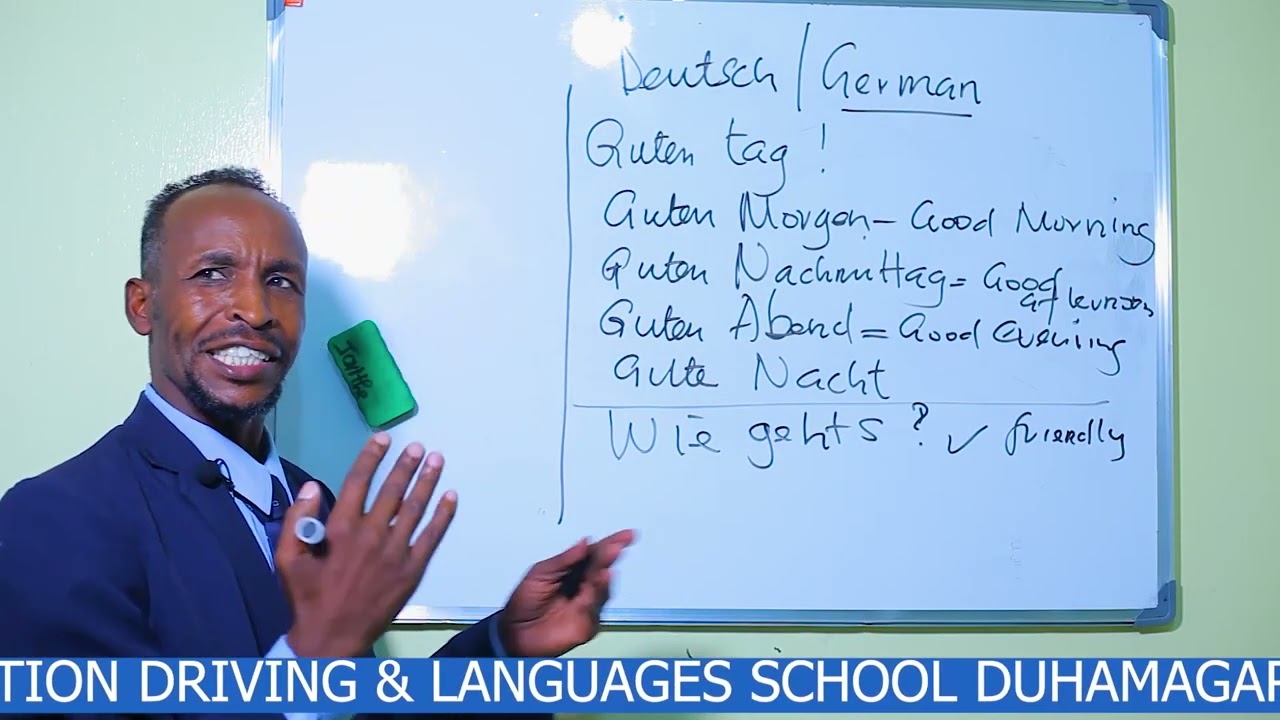 Deutsch / German
Guten tag !
Guten Morgen - Good Morning
Guten Nachmittag = Good
afternoon
Guten Abend = Good evening
Gute Nacht
Wie gehts ? ✓ friendly
TION DRIVING & LANGUAGES SCHOOL DUHAMAGAR